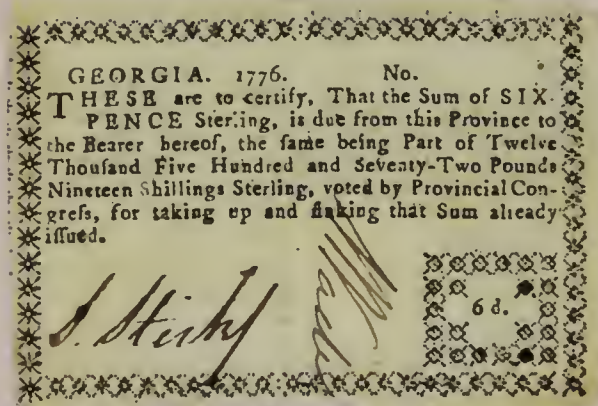 GEORGIA. 1776. No.
THESE are to certify, That the Sum of SIX-
PENCE Sterling, is due from this Province to
the Bearer hereof, the ſame being Part of Twelve
Thouſand Five Hundred and Seventy-Two Pounds
Nineteen Shillings Sterling, voted by Provincial Con-
greſs, for taking up and ſinking that Sum already
iſſued.
S. Stirk
6 d.